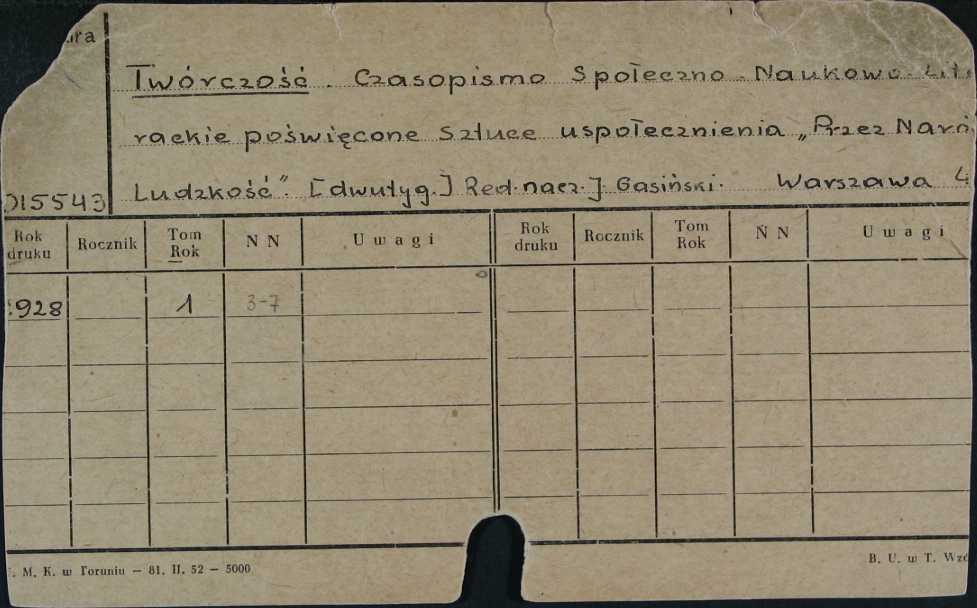 Twórczość. Czasopismo Społeczno-Naukowo-Lite
rackie poświęcone sztuce uspołecznienia „Przez Naró
015543 Ludzkość". [dwutyg.] Red. nacz. J. Gasiński. Warszawa
Rok druku Rocznik Tom Rok N N Uwagi Rok druku Rocznik Tom Rok N N Uwagi
1928 1 3-7
M. K. w Toruniu — 81. II. 52 — 5000
B. U. w T. Wzó